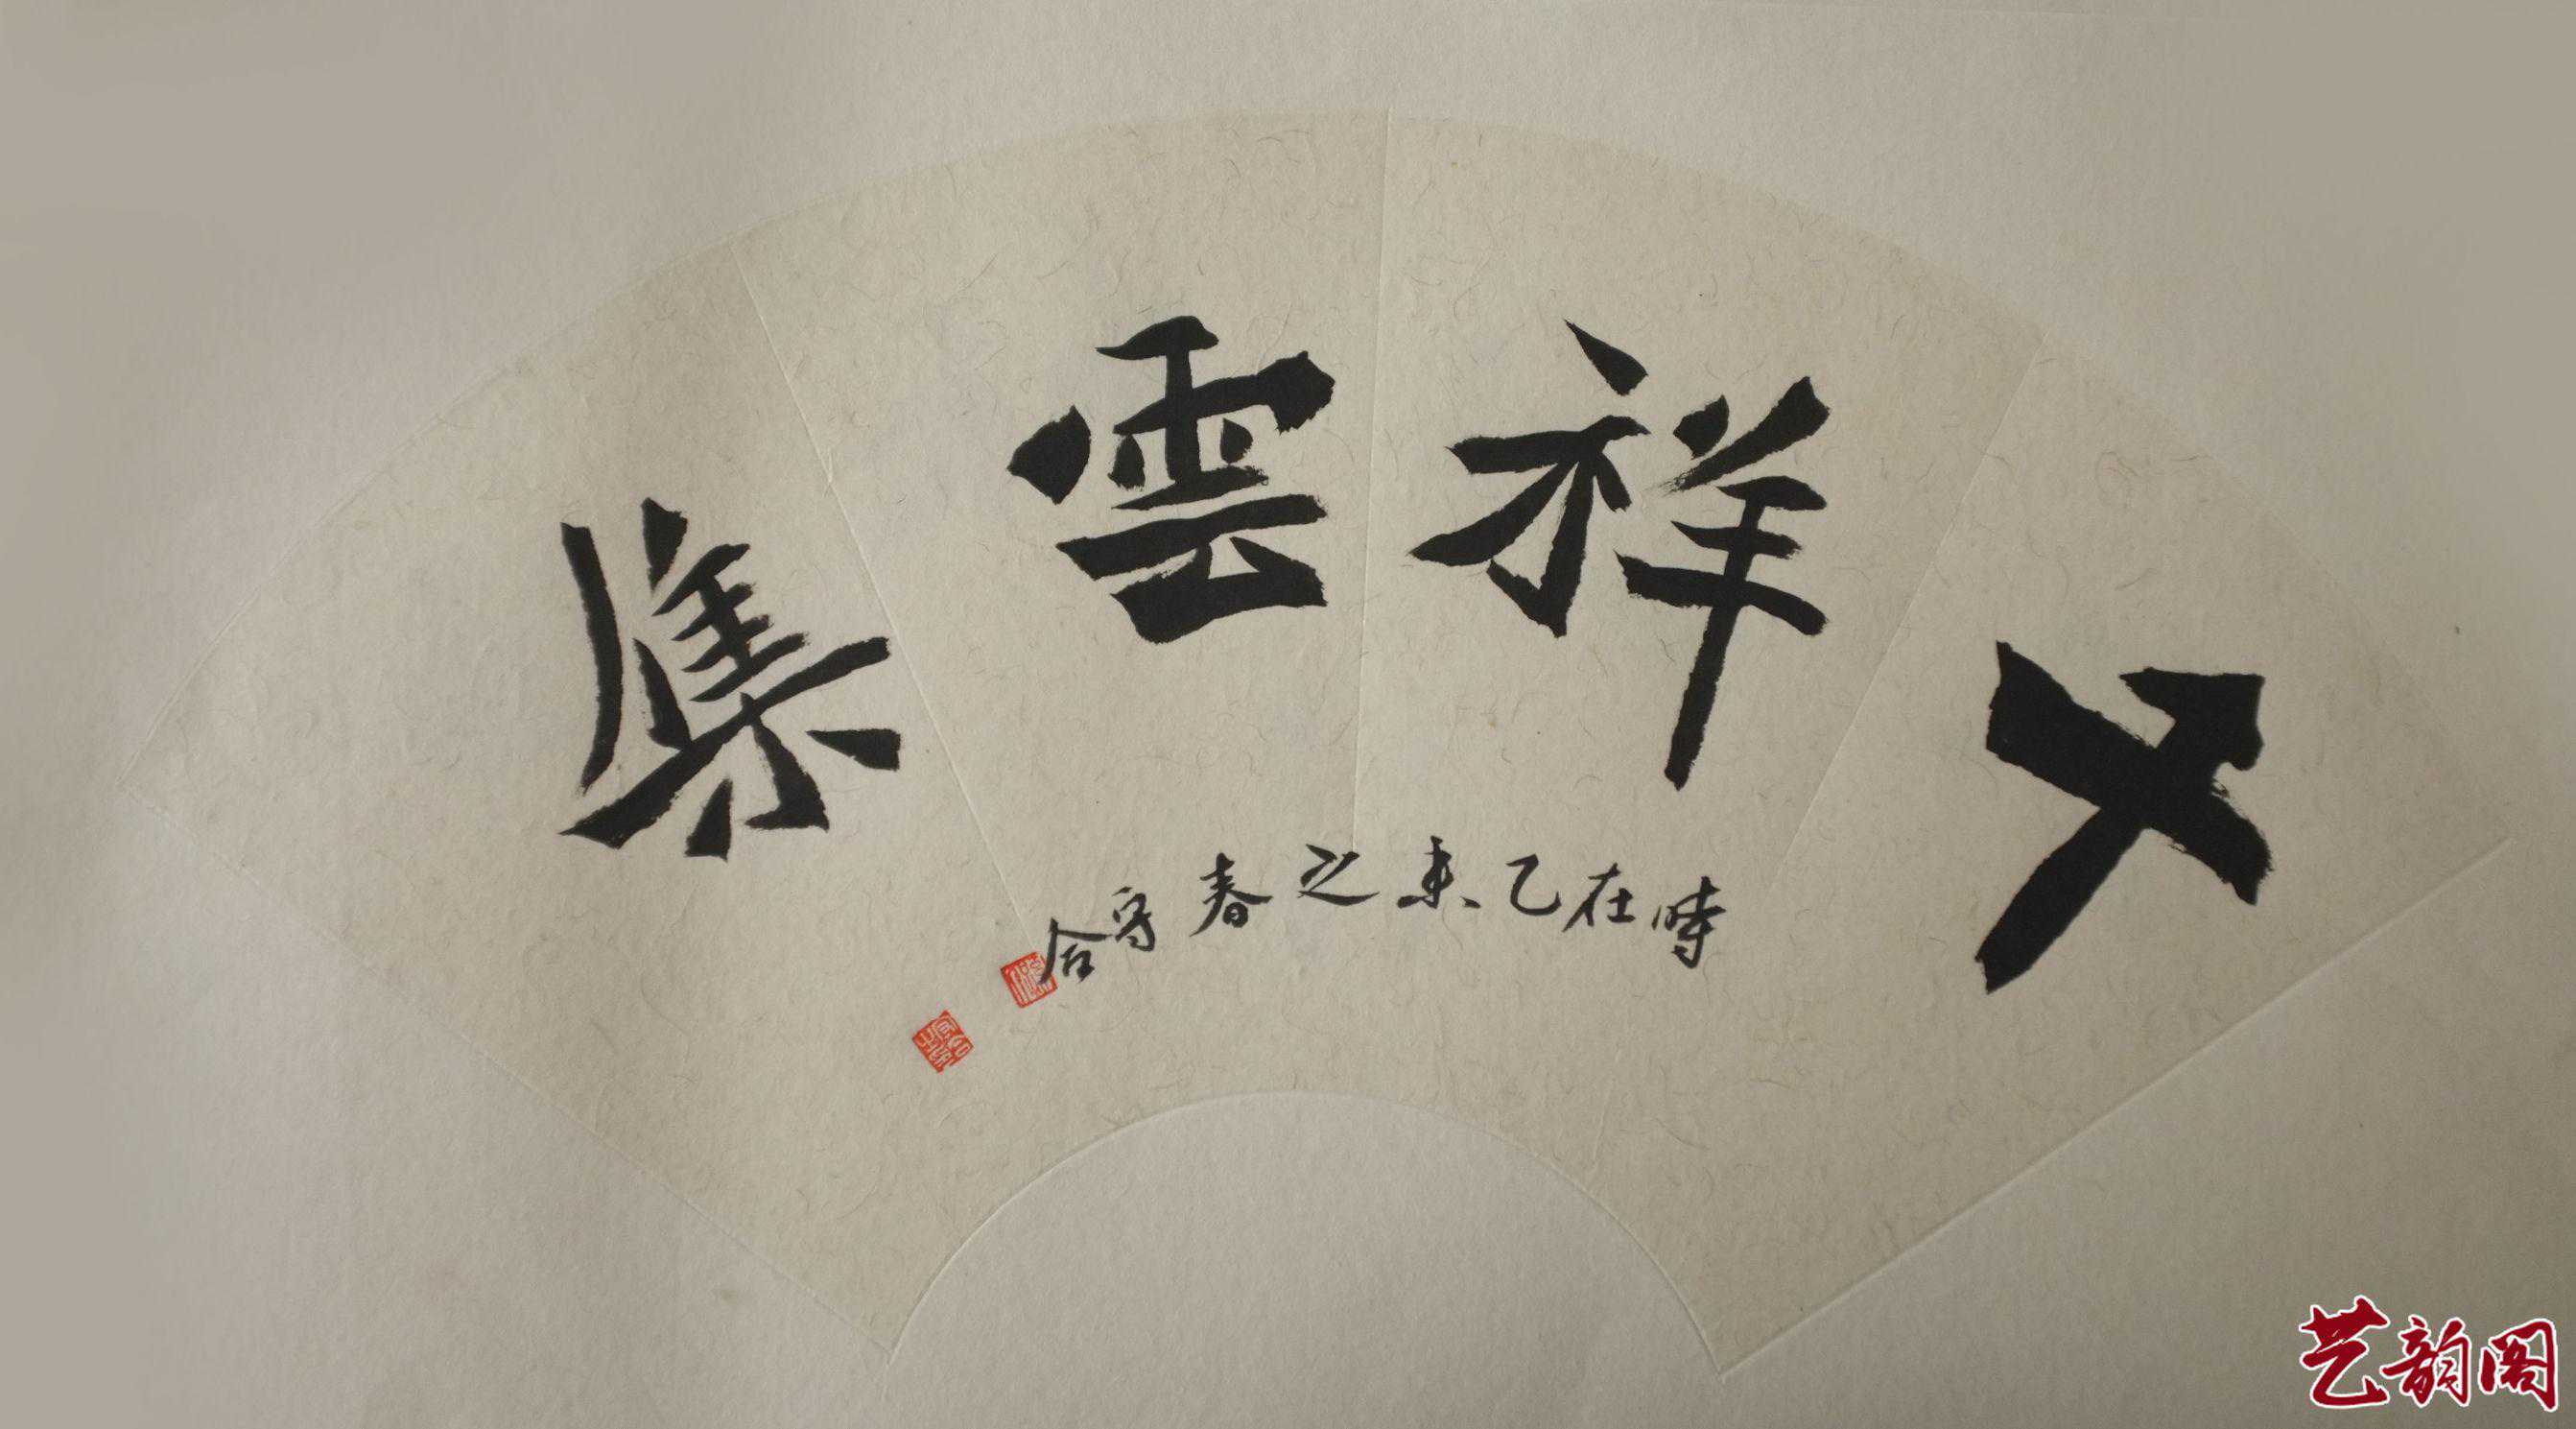 千祥雲集
時在乙未之春守合
艺韵阁